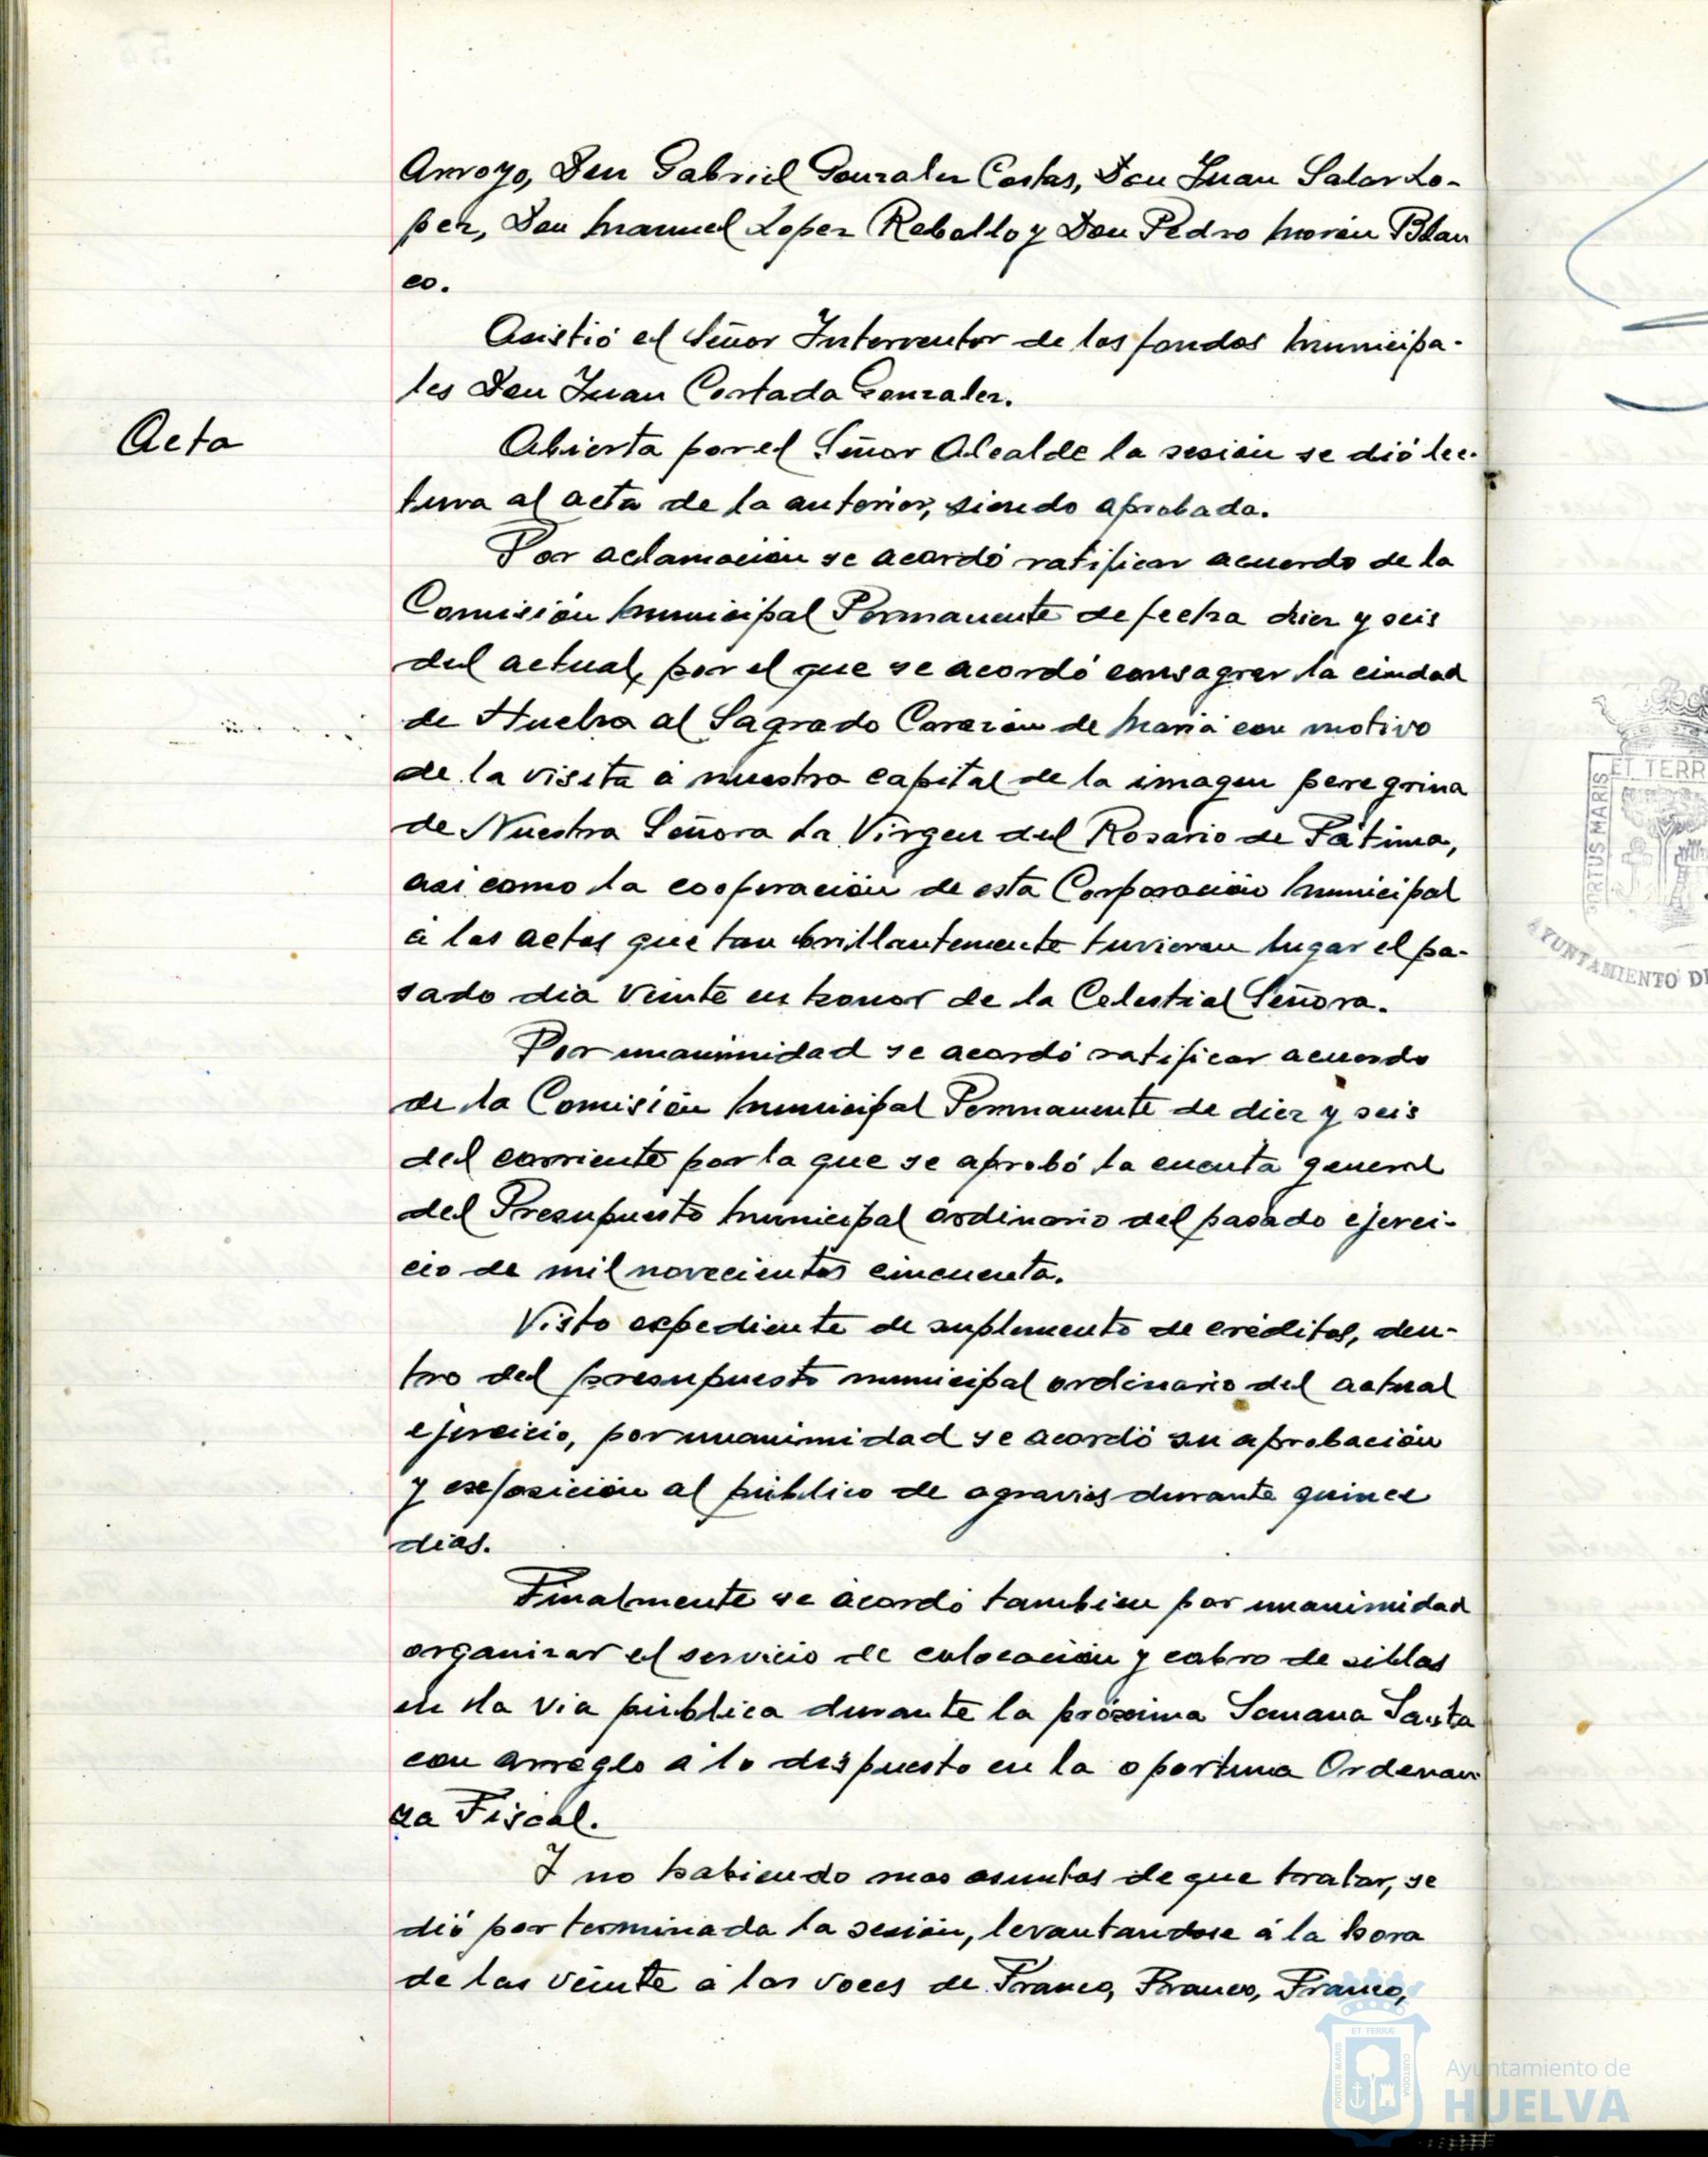 Arroyo, Don Gabriel Gonzalez Costas, Don Juan Salas Lo-
pez, Don Manuel Lopez Rebollo y Don Pedro Morón Blan
co.
Asistió el Señor Interventor de los fondos Municipa-
les Don Juan Cortada Gonzalez.
Acta
Abierta por el Señor Alcalde la sesión se dió lec-
tura al acta de la anterior, siendo aprobada.
Por aclamación se acordó ratificar acuerdo de la
Comisión Municipal Permanente de fecha diez y seis
del actual, por el que se acordó consagrar la ciudad
de Huelva al Sagrado Corazón de María con motivo
de la visita á nuestra capital de la imagen peregrina
de Nuestra Señora la Virgen del Rosario de Fátima,
asi como la cooperación de esta Corporación Municipal
á los actos que tan brillantemente tuvieron lugar el pa-
sado dia veinte en honor de la Celestial Señora.
Por unanimidad se acordó ratificar acuerdo
de la Comisión Municipal Permanente de diez y seis
del corriente por la que se aprobó la cuenta general
del Presupuesto Municipal ordinario del pasado ejerci-
cio de mil novecientos cincuenta.
Visto expediente de suplemento de créditos, den-
tro del presupuesto municipal ordinario del actual
ejercicio, por unanimidad se acordó su aprobación
y exposición al público de agravios durante quince
dias.
Finalmente se acordó tambien por unanimidad
organizar el servicio de colocación y cobro de sillas
en la via pública durante la próxima Semana Santa
con arreglo a lo dispuesto en la oportuna Ordenan
za Fiscal.
Y no habiendo mas asuntos de que tratar, se
dió por terminada la sesión, levantandose á la hora
de las veinte a las voces de Franco, Franco, Franco,
ET TERR
PORTUS MARIS
AYUNTAMIENTO D
ET TERRÆ
PORTUS MARIS
CUSTODIA
Ayuntamiento de
HUELVA